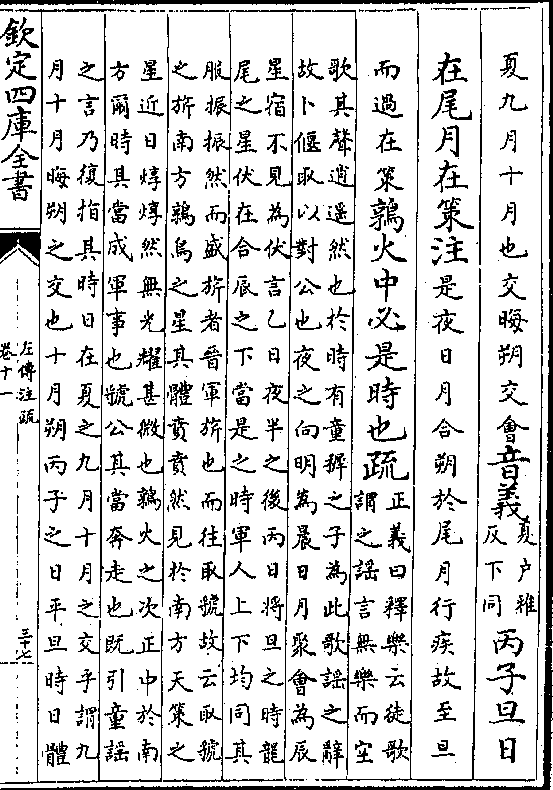 夏九月十月也交晦朔交會音義夏户雅反下同丙子旦日
在尾月在策注是夜日月合朔於尾月行疾故至旦
而過在策鶉火中必是時也疏正義曰釋樂云徒歌謂之謡言無樂而空
歌其聲逍遥然也於時有童稺之子為此歌謡之辭
故卜偃取以對公也夜之向明為晨日月聚會為辰
星宿不見為伏言乙日夜半之後丙日將旦之時龍
尾之星伏在合辰之下當是之時軍人上下均同其
服振振然而盛旂者晉軍旂也而往取虢故云取虢
之旂南方鶉鳥之星其體賁賁然見於南方天策之
星近日焞焞然無光耀甚微也鶉火之次正中於南
方爾時其當成軍事也虢公其當奔走也既引童謡
之言乃復指其時日在夏之九月十月之交乎謂九
月十月晦朔之交也十月朔丙子之日平旦時日體
欽定四庫全書
左傳注疏
卷十一
三十七